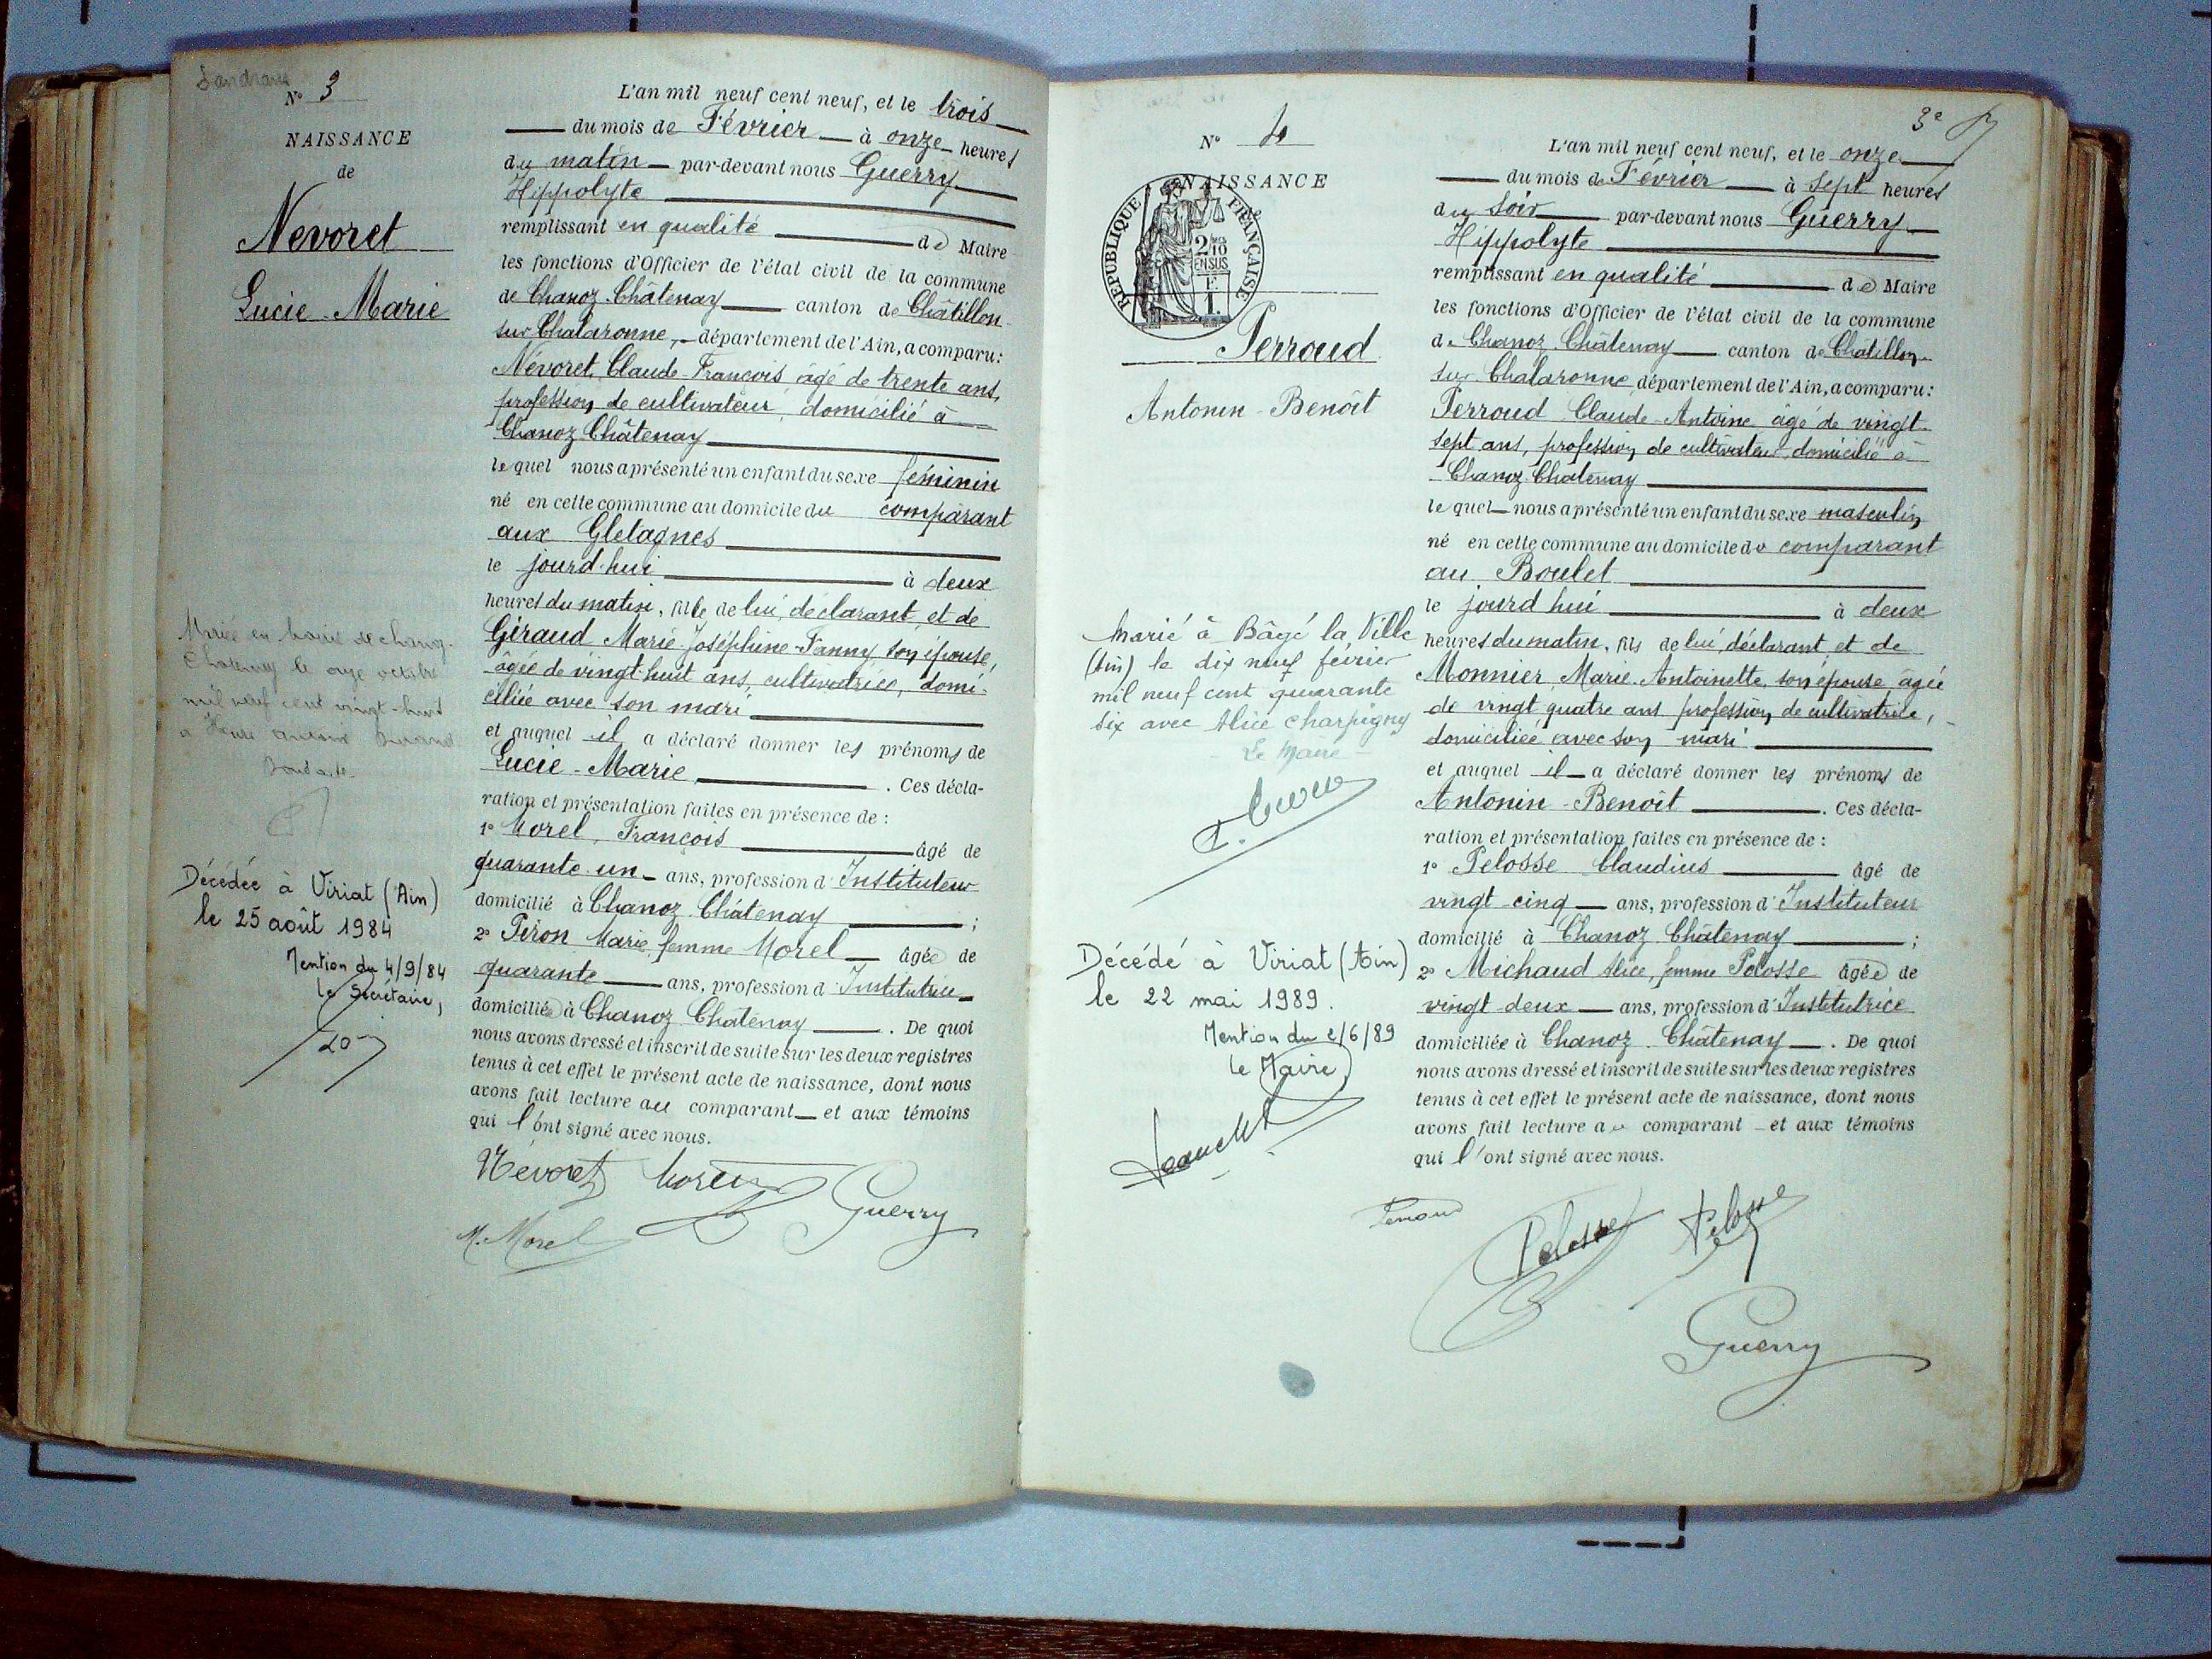 N° 3
NAISSANCE
de
Nevoret
Lucie-Marie
L'an mil neuf cent neuf, et le trois
du mois de Février à onze heures
du matin par-devant nous Guerry
Hippolyte
remplissant en qualité de Maire
les fonctions d'Officier de l'état civil de la commune
de Chanoz-Châtenay canton de Châtillon-
sur-Chalaronne, département de l'Ain, a comparu:
Névoret, Claude-François âgé de trente ans,
profession de cultivateur, domicilié à
Chanoz Châtenay
lequel nous a présenté un enfant du sexe féminin
né en cette commune au domicile du comparant
aux Gletagnes
le jourd'hui à deux
heures du matin, fille de lui, déclarant, et de
Géraud Marie-Joséphine-Fanny son épouse,
âgée de vingt-huit ans, cultivatrice, domi-
ciliée avec son mari
et auquel il a déclaré donner les prénoms de
Lucie-Marie. Ces décla-
ration et présentation faites en présence de :
1° Morel, François âgé de
quarante-un ans, profession d'Instituteur
domicilié à Chanoz-Châtenay ;
2° Piron Marie, femme Morel âgée de
quarante ans, profession d'Institutrice
domiciliée à Chanoz Châtenay. De quoi
nous avons dressé et inscrit de suite sur les deux registres
tenus à cet effet le présent acte de naissance, dont nous
avons fait lecture au comparant et aux témoins
qui l'ont signé avec nous.
Mariée en mairie de Chanoz-
Chatenay le onze octobre
mil neuf cent vingt-huit
Décédée à Viriat (Ain)
le 25 août 1984
Mention du 4/9/84
le Secrétaire,
Nevoret Morel Guerry
M. Morel
3e
N° 4
NAISSANCE
RÉPUBLIQUE FRANÇAISE
2/10 EN SUS
Perroud
Antonin-Benoît
L'an mil neuf cent neuf, et le onze
du mois de Février à sept heures
du soir par-devant nous Guerry
Hippolyte
remplissant en qualité de Maire
les fonctions d'Officier de l'état civil de la commune
de Chanoz Châtenay canton de Chatillon-
sur-Chalaronne département de l'Ain, a comparu:
Perroud Claude-Antoine âgé de vingt-
sept ans, profession de cultivateur domicilié à
Chanoz Chatenay
lequel nous a présenté un enfant du sexe masculin
né en cette commune au domicile du comparant
au Boulet
le jourd'hui à deux
heures du matin, fils de lui, déclarant et de
Monnier, Marie-Antoinette, son épouse, âgée
de vingt quatre ans profession de cultivatrice,
domiciliée avec son mari
et auquel il a déclaré donner les prénoms de
Antonin-Benoît. Ces décla-
ration et présentation faites en présence de :
1° Pelosse Claudius âgé de
vingt-cinq ans, profession d'Instituteur
domicilié à Chanoz-Châtenay ;
2° Michaud Alice, femme Pelosse âgée de
vingt deux ans, profession d'Institutrice
domiciliée à Chanoz Châtenay. De quoi
nous avons dressé et inscrit de suite sur les deux registres
tenus à cet effet le présent acte de naissance, dont nous
avons fait lecture au comparant et aux témoins
qui l'ont signé avec nous.
Marié à Bâgé la Ville
(Ain) le dix neuf février
mil neuf cent quarante
six avec Alice Charpigny
Le Maire
Décédé à Viriat (Ain)
le 22 mai 1989.
Mention du 2/6/89
le Maire
Perroud
Pelosse Pelosse
Guerry